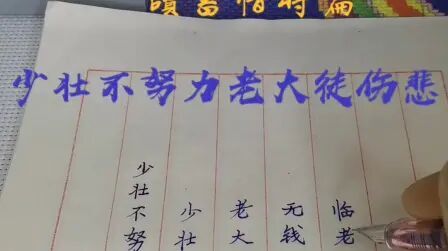 惜時篇
少壮不努力老大徒伤悲
少壮不努
少壮
老大
无钱
临老